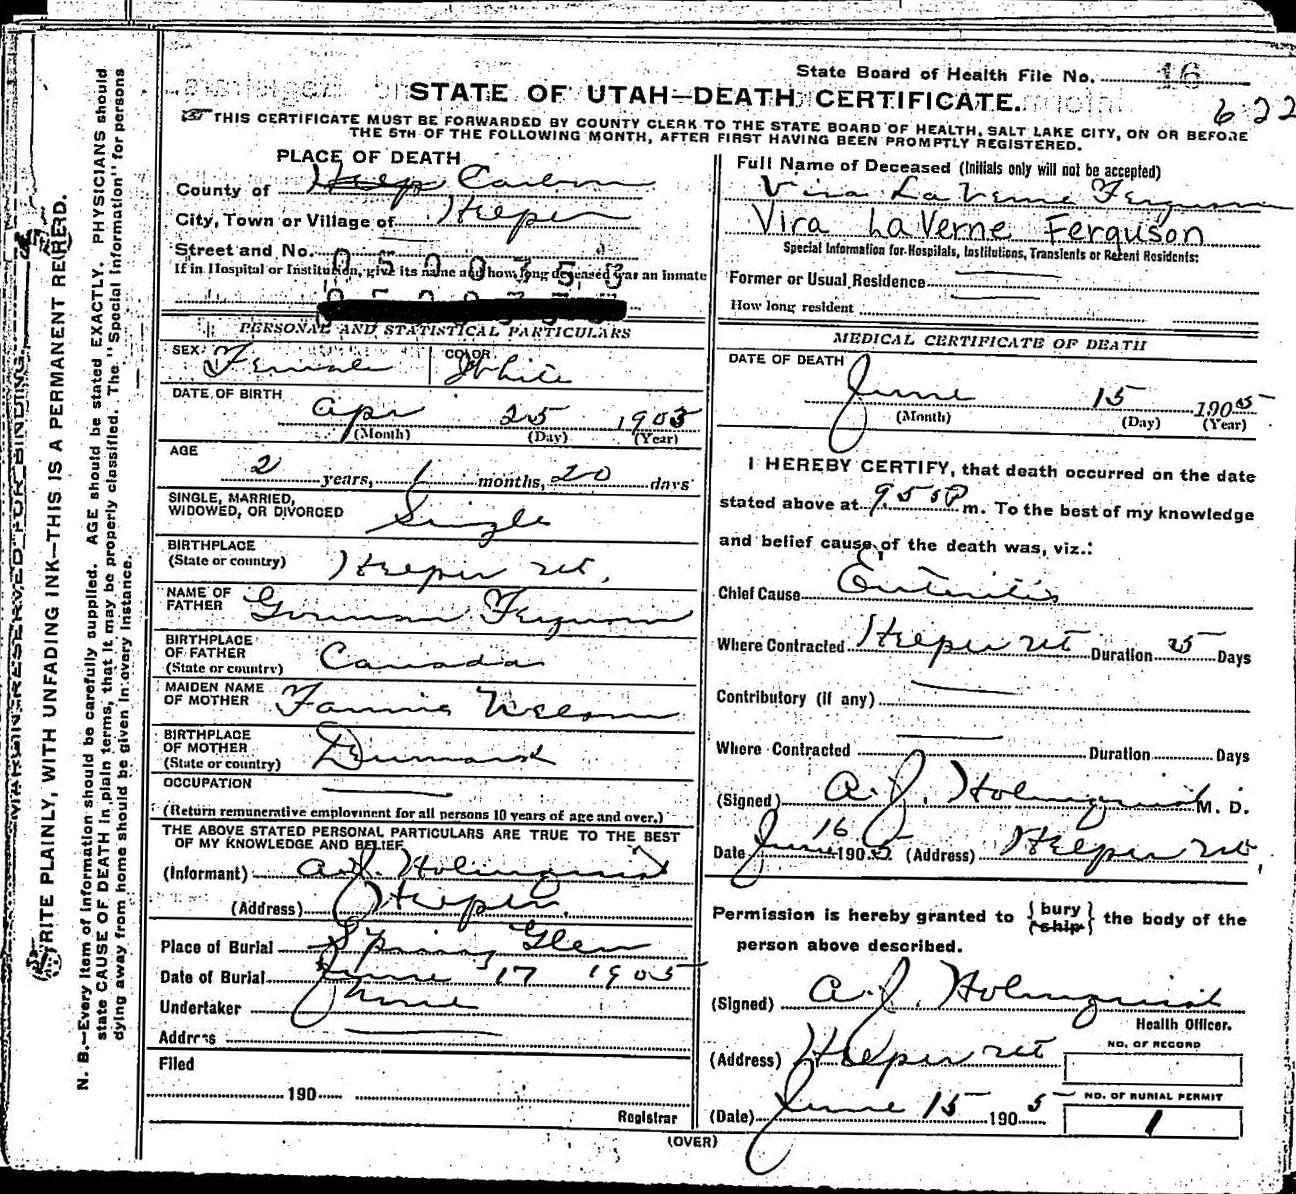 State Board of Health File No. 16
622
STATE OF UTAH—DEATH CERTIFICATE.
THIS CERTIFICATE MUST BE FORWARDED BY COUNTY CLERK TO THE STATE BOARD OF HEALTH, SALT LAKE CITY, ON OR BEFORE
THE 5TH OF THE FOLLOWING MONTH, AFTER FIRST HAVING BEEN PROMPTLY REGISTERED.
PLACE OF DEATH
County of Carbon
City, Town or Village of Helper
Street and No.
0500353
If in Hospital or Institution, give its name and how long deceased was an inmate
PERSONAL AND STATISTICAL PARTICULARS
SEX: Female COLOR White
DATE OF BIRTH
Apr 25 1903
(Month) (Day) (Year)
AGE
2 years, 1 months, 20 days
SINGLE, MARRIED,
WIDOWED, OR DIVORCED Single
BIRTHPLACE
(State or country) Helper Ut.
NAME OF
FATHER Gorman Ferguson
BIRTHPLACE
OF FATHER
(State or country) Canada
MAIDEN NAME
OF MOTHER Fannie Nelson
BIRTHPLACE
OF MOTHER
(State or country) Denmark
OCCUPATION
(Return remunerative employment for all persons 10 years of age and over.)
THE ABOVE STATED PERSONAL PARTICULARS ARE TRUE TO THE BEST
OF MY KNOWLEDGE AND BELIEF
(Informant) A. J. Holmquist
(Address) Helper.
Place of Burial Spring Glen
Date of Burial June 17 1905
Undertaker None
Address
Filed
190
Registrar
Full Name of Deceased (Initials only will not be accepted)
Vira La Verne Ferguson
Vira LaVerne Ferguson
Special Information for Hospitals, Institutions, Transients or Recent Residents:
Former or Usual Residence
How long resident
MEDICAL CERTIFICATE OF DEATH
DATE OF DEATH
June 15 1905
(Month) (Day) (Year)
I HEREBY CERTIFY, that death occurred on the date
stated above at 9.55 P m. To the best of my knowledge
and belief cause of the death was, viz.:
Chief Cause Enteritis
Where Contracted Helper Ut Duration 5 Days
Contributory (if any)
Where Contracted Duration Days
(Signed) A. J. Holmquist M. D.
Date June 16 190 (Address) Helper Ut.
Permission is hereby granted to {bury ship} the body of the
person above described.
(Signed) A. J. Holmquist
Health Officer.
(Address) Helper Ut
NO. OF RECORD
(Date) June 15 1905
NO. OF BURIAL PERMIT
1
(OVER)
MARGIN RESERVED FOR BINDING
WRITE PLAINLY, WITH UNFADING INK—THIS IS A PERMANENT RECORD.
N. B.—Every item of information should be carefully supplied. AGE should be stated EXACTLY. PHYSICIANS should
state CAUSE OF DEATH in plain terms, that it may be properly classified. The "Special Information" for persons
dying away from home should be given in every instance.